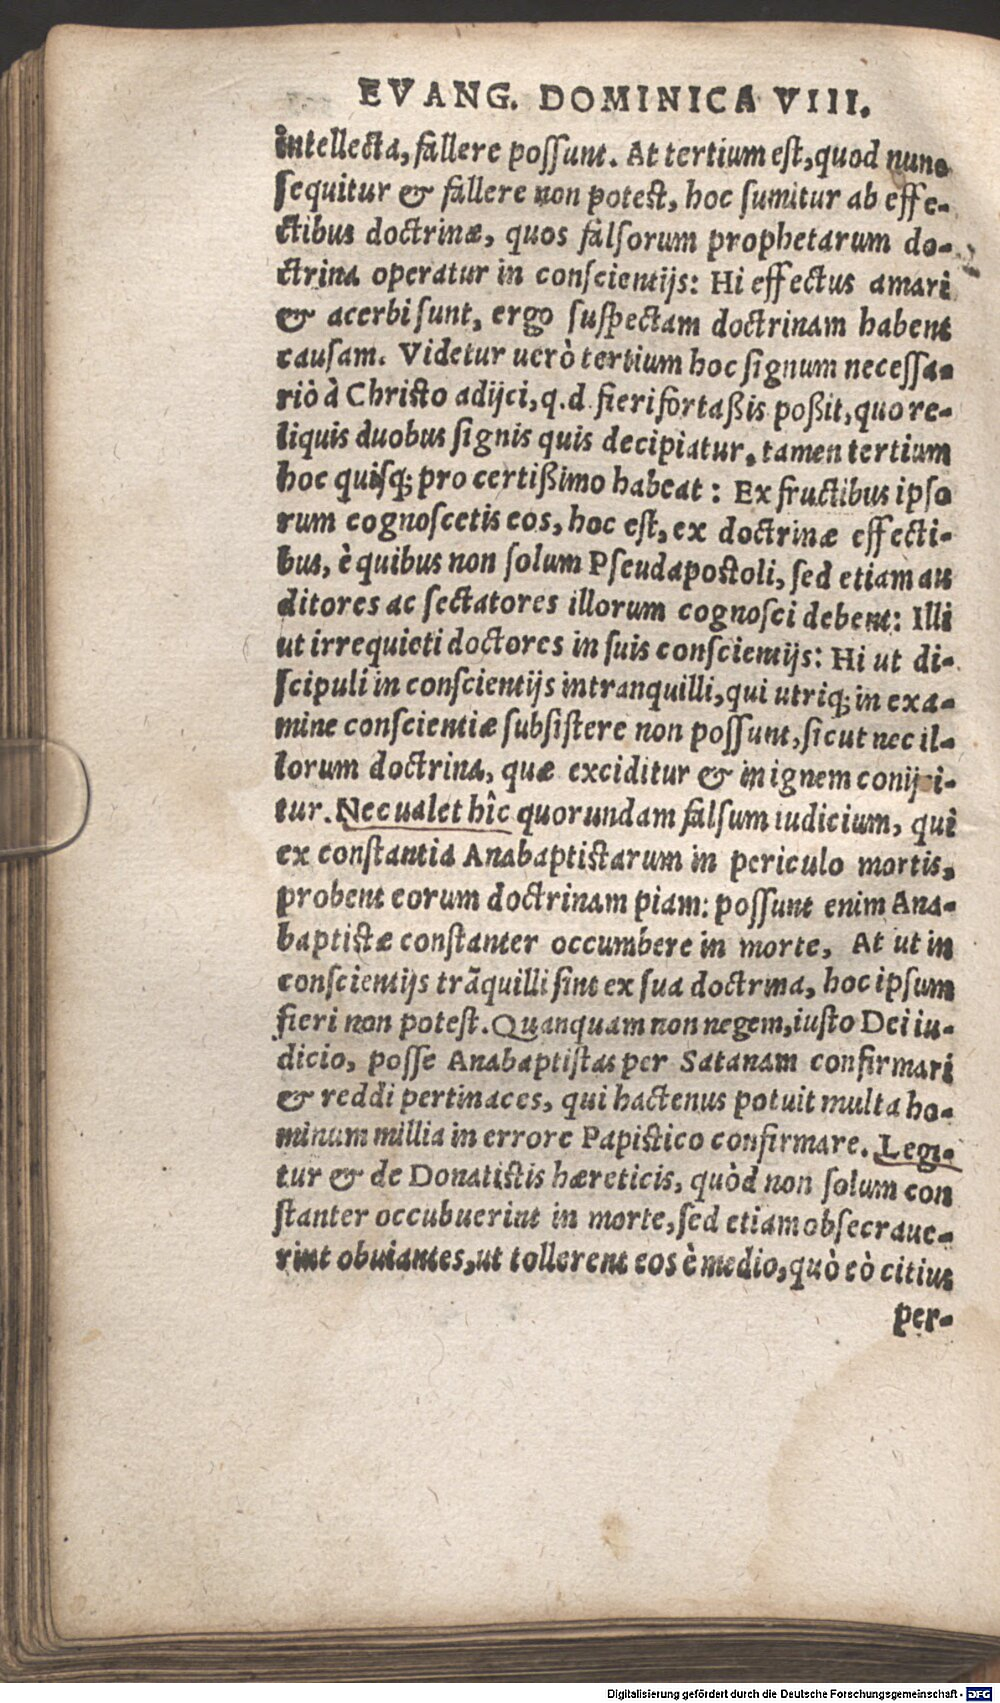 EVANG. DOMINICA VIII.
intellecta, fallere possunt. At tertium est, quod nunc
sequitur & fallere non potest, hoc sumitur ab effe-
ctibus doctrinæ, quos falsorum prophetarum do-
ctrina operatur in conscientijs: Hi effectus amari
& acerbi sunt, ergo suspectam doctrinam habent
causam. Videtur uerò tertium hoc signum necessa-
riò à Christo adijci, q.d. fieri fortaßis poßit, quo re-
liquis duobus signis quis decipiatur, tamen tertium
hoc quisq; pro certißimo habeat: Ex fructibus ipso
rum cognoscetis eos, hoc est, ex doctrinæ effecti-
bus, è quibus non solum Pseudapostoli, sed etiam au
ditores ac sectatores illorum cognosci debent: Illi
ut irrequieti doctores in suis conscientijs: Hi ut di-
scipuli in conscientijs intranquilli, qui utriq; in exa-
mine conscientiæ subsistere non possunt, sicut nec il-
lorum doctrina, quæ exciditur & in ignem conijci-
tur. Nec ualet hîc quorundam falsum iudicium, qui
ex constantia Anabaptistarum in periculo mortis,
probent eorum doctrinam piam: possunt enim Ana-
baptistæ constanter occumbere in morte, At ut in
conscientijs trãquilli sint ex sua doctrina, hoc ipsum
fieri non potest. Quanquam non negem, iusto Dei iu-
dicio, posse Anabaptistas per Satanam confirmari
& reddi pertinaces, qui hactenus potuit multa ho-
minum millia in errore Papistico confirmare. Legi-
tur & de Donatistis hæreticis, quòd non solum con
stanter occubuerint in morte, sed etiam obsecraue-
rint obuiantes, ut tollerent eos è medio, quò eò citius
per-
Digitalisierung gefördert durch die Deutsche Forschungsgemeinschaft - DFG